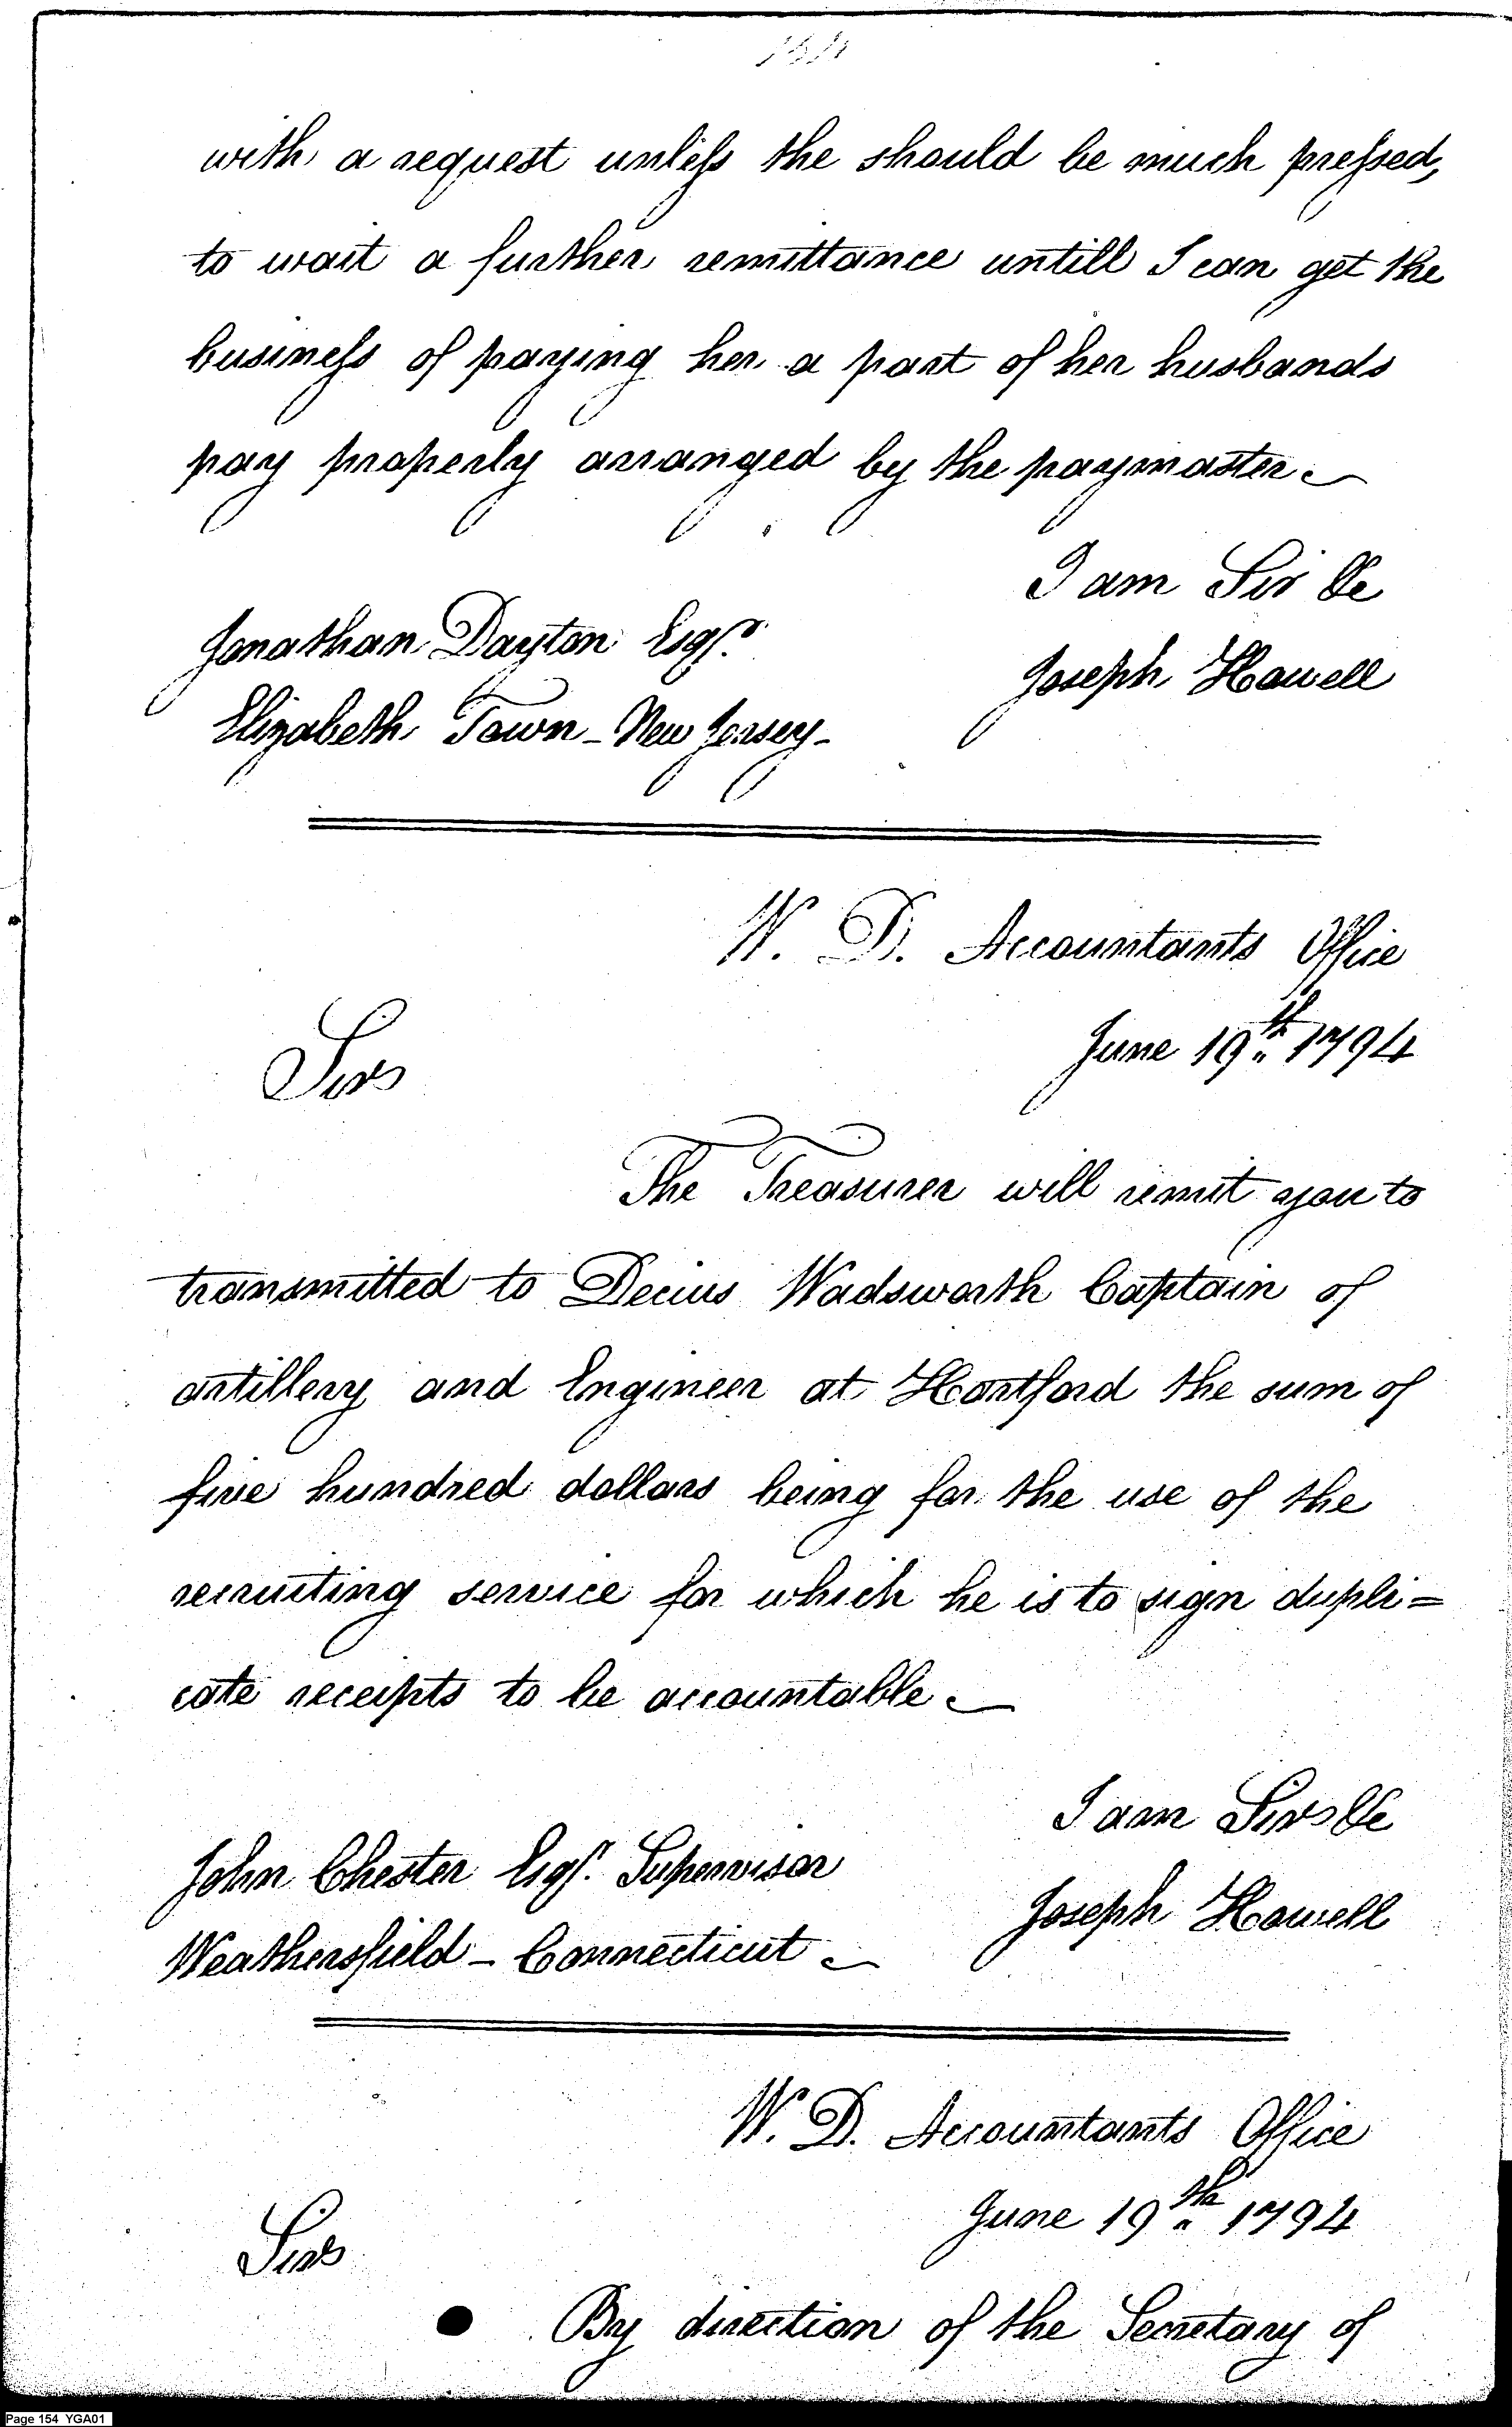 154
with a request unless the should be much pressed,
to wait a further remittance untill I can get the
business of paying her a part of her husbands
pay properly arranged by the paymaster
I am Sir &c
Jonathan Dayton Esqr.
Joseph Howell
Elizabeth Town - New Jersey -
W. D. Accountants Office
June 19th 1794
Sirs
The Treasurer will remit you to
transmitted to Decius Wadsworth Captain of
artillery and Engineer at Hartford the sum of
five hundred dollars being for the use of the
recruiting service for which he is to sign dupli=
cate receipts to be accountable
I am Sirs &c
John Chester Esqr. Supervisor
Joseph Howell
Weathersfield - Connecticut
W. D. Accountants Office
June 19th 1794
Sirs
By direction of the Secretary of
Page 154 YGA01